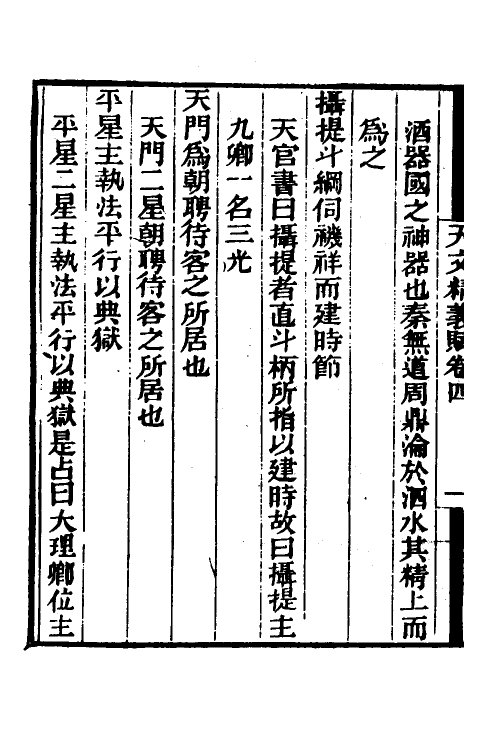 天文精義賦卷四
一
酒器國之神器也秦無道周鼎淪於泗水其精上而
為之
攝提斗綱伺禨祥而建時節
天官書曰攝提者直斗柄所指以建時故曰攝提主
九卿一名三光
天門為朝聘待客之所居也
天門二星朝聘待客之所居也
平星主執法平行以典獄
平星二星主執法平行以典獄是占曰大理卿位主